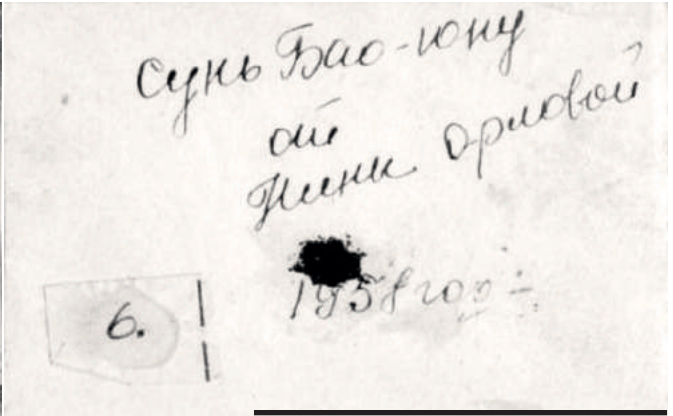 Сунь Бао-юну
от
Нины Орловой
1958 год
6.